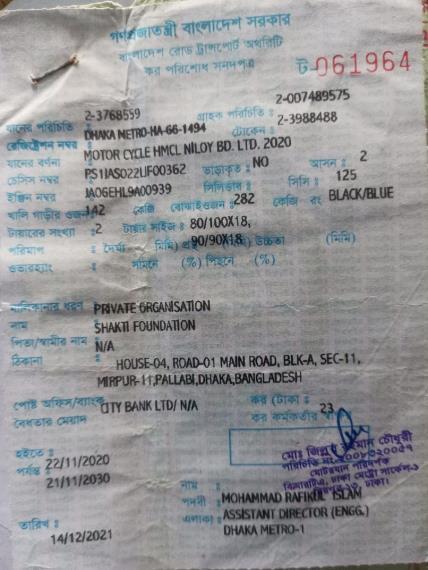 গণপ্রজাতন্ত্রী বাংলাদেশ সরকার
বাংলাদেশ রোড ট্রান্সপোর্ট অথরিটি
কর পরিশোধ সনদপত্র
ট-061964
যানের পরিচিতি : 2-3768559 গ্রাহক পরিচিতি : 2-007489575
রেজিস্ট্রেশন নম্বর : DHAKA METRO-HA-66-1494 টোকেন : 2-3988488
যানের বর্ণনা : MOTOR CYCLE HMCL NILOY BD. LTD. 2020
চেসিস নম্বর : PS1IAS022UF00362 ভাড়াকৃত : NO আসন : 2
ইঞ্জিন নম্বর : JA06EHL9A00939 সিলিন্ডার : সিসি : 125
খালি গাড়ীর ওজন : 142 কেজি বোঝাইওজন : 282 কেজি রং BLACK/BLUE
টায়ারের সংখ্যা : 2 টায়ার সাইজ : 80/100X18,
পরিমাপ : দৈর্ঘ্য (মিমি) 90/90X18, উচ্চতা (মিমি)
ওভারহ্যাং : সামনে (%) পিছনে (%)
মালিকানার ধরণ : PRIVATE ORGANISATION
নাম : SHAKTI FOUNDATION
পিতা/স্বামীর নাম : N/A
ঠিকানা : HOUSE-04, ROAD-01 MAIN ROAD, BLK-A, SEC-11,
MIRPUR-11,PALLABI,DHAKA,BANGLADESH
পোষ্ট অফিস/ব্যাংক : CITY BANK LTD/ N/A কর (টাকা : 23
বৈধতার মেয়াদ কর কর্মকর্তার
হইতে : 22/11/2020
পর্যন্ত : 21/11/2030
চৌধুরী
মোটরযান পরিদর্শক
নাম : MOHAMMAD RAFIKUL ISLAM
পদবী : ASSISTANT DIRECTOR (ENGG.)
এলাকা : DHAKA METRO-1
তারিখ : 14/12/2021